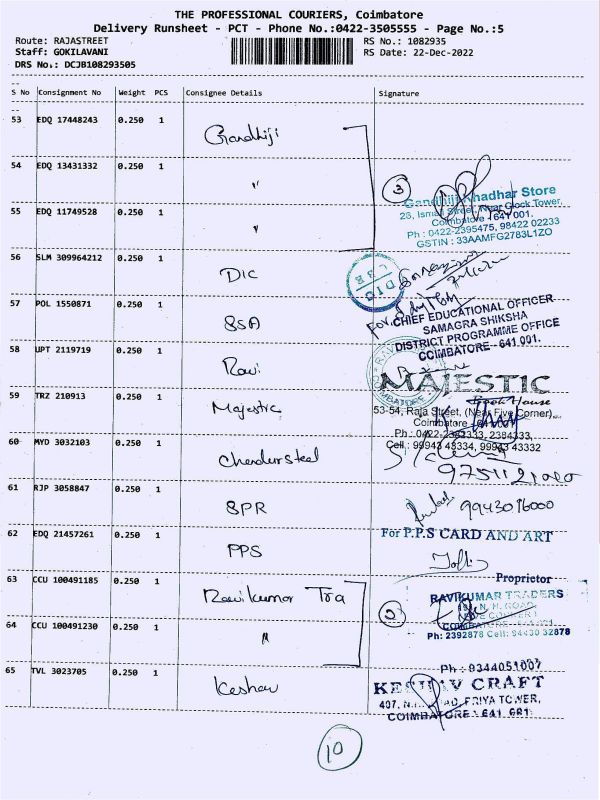 THE PROFESSIONAL COURIERS, Coimbatore
Delivery Runsheet - PCT - Phone No.:0422-3505555 - Page No.:5
Route: RAJASTREET
RS No.: 1082935
Staff: GOKILAVANI
RS Date: 22-Dec-2022
DRS No.: DCJB108293505
S No Consignment No Weight PCS Consignee Details Signature
53 EDQ 17448243 0.250 1 Gandhiji
54 EDQ 13431332 0.250 1 "
3
Gandhiji Khadhar Store
23, Ismail Street, Near Clock Tower,
55 EDQ 11749528 0.250 1 "
Coimbatore - 641 001.
Ph : 0422-2395475, 98422 02233
GSTIN : 33AAMFG2783L1ZO
56 SLM 309964212 0.250 1 DIC
DIC
CBE
57 POL 1550871 0.250 1 SSA
For
CHIEF EDUCATIONAL OFFICER
SAMAGRA SHIKSHA
DISTRICT PROGRAMME OFFICE
COIMBATORE - 641 001.
58 UPT 2119719 0.250 1 Ravi
MAJESTIC
Book House
59 TRZ 210913 0.250 1 Majestic
53-54, Raja Street, (Near Five Corner),
Coimbatore - 641 001
Ph : 0422-2382333, 2384333,
60 MYD 3032103 0.250 1 Chendur steel
Cell : 99943 43334, 99943 43332
9751121000
61 RJP 3058847 0.250 1 SPR
9943016000
62 EDQ 21457261 0.250 1 PPS
For P.P.S CARD AND ART
Proprietor
63 CCU 100491185 0.250 1 Ravikumar Tra
2
RAVIKUMAR TRADERS
N. H. ROAD
64 CCU 100491230 0.250 1 "
Ph: 2392878 Cell: 94430 32878
65 TVL 3023705 0.250 1 Keshav
Ph : 9344051007
KESHAV CRAFT
407, N.H. ROAD, PRIYA TOWER,
COIMBATORE - 641 001
10